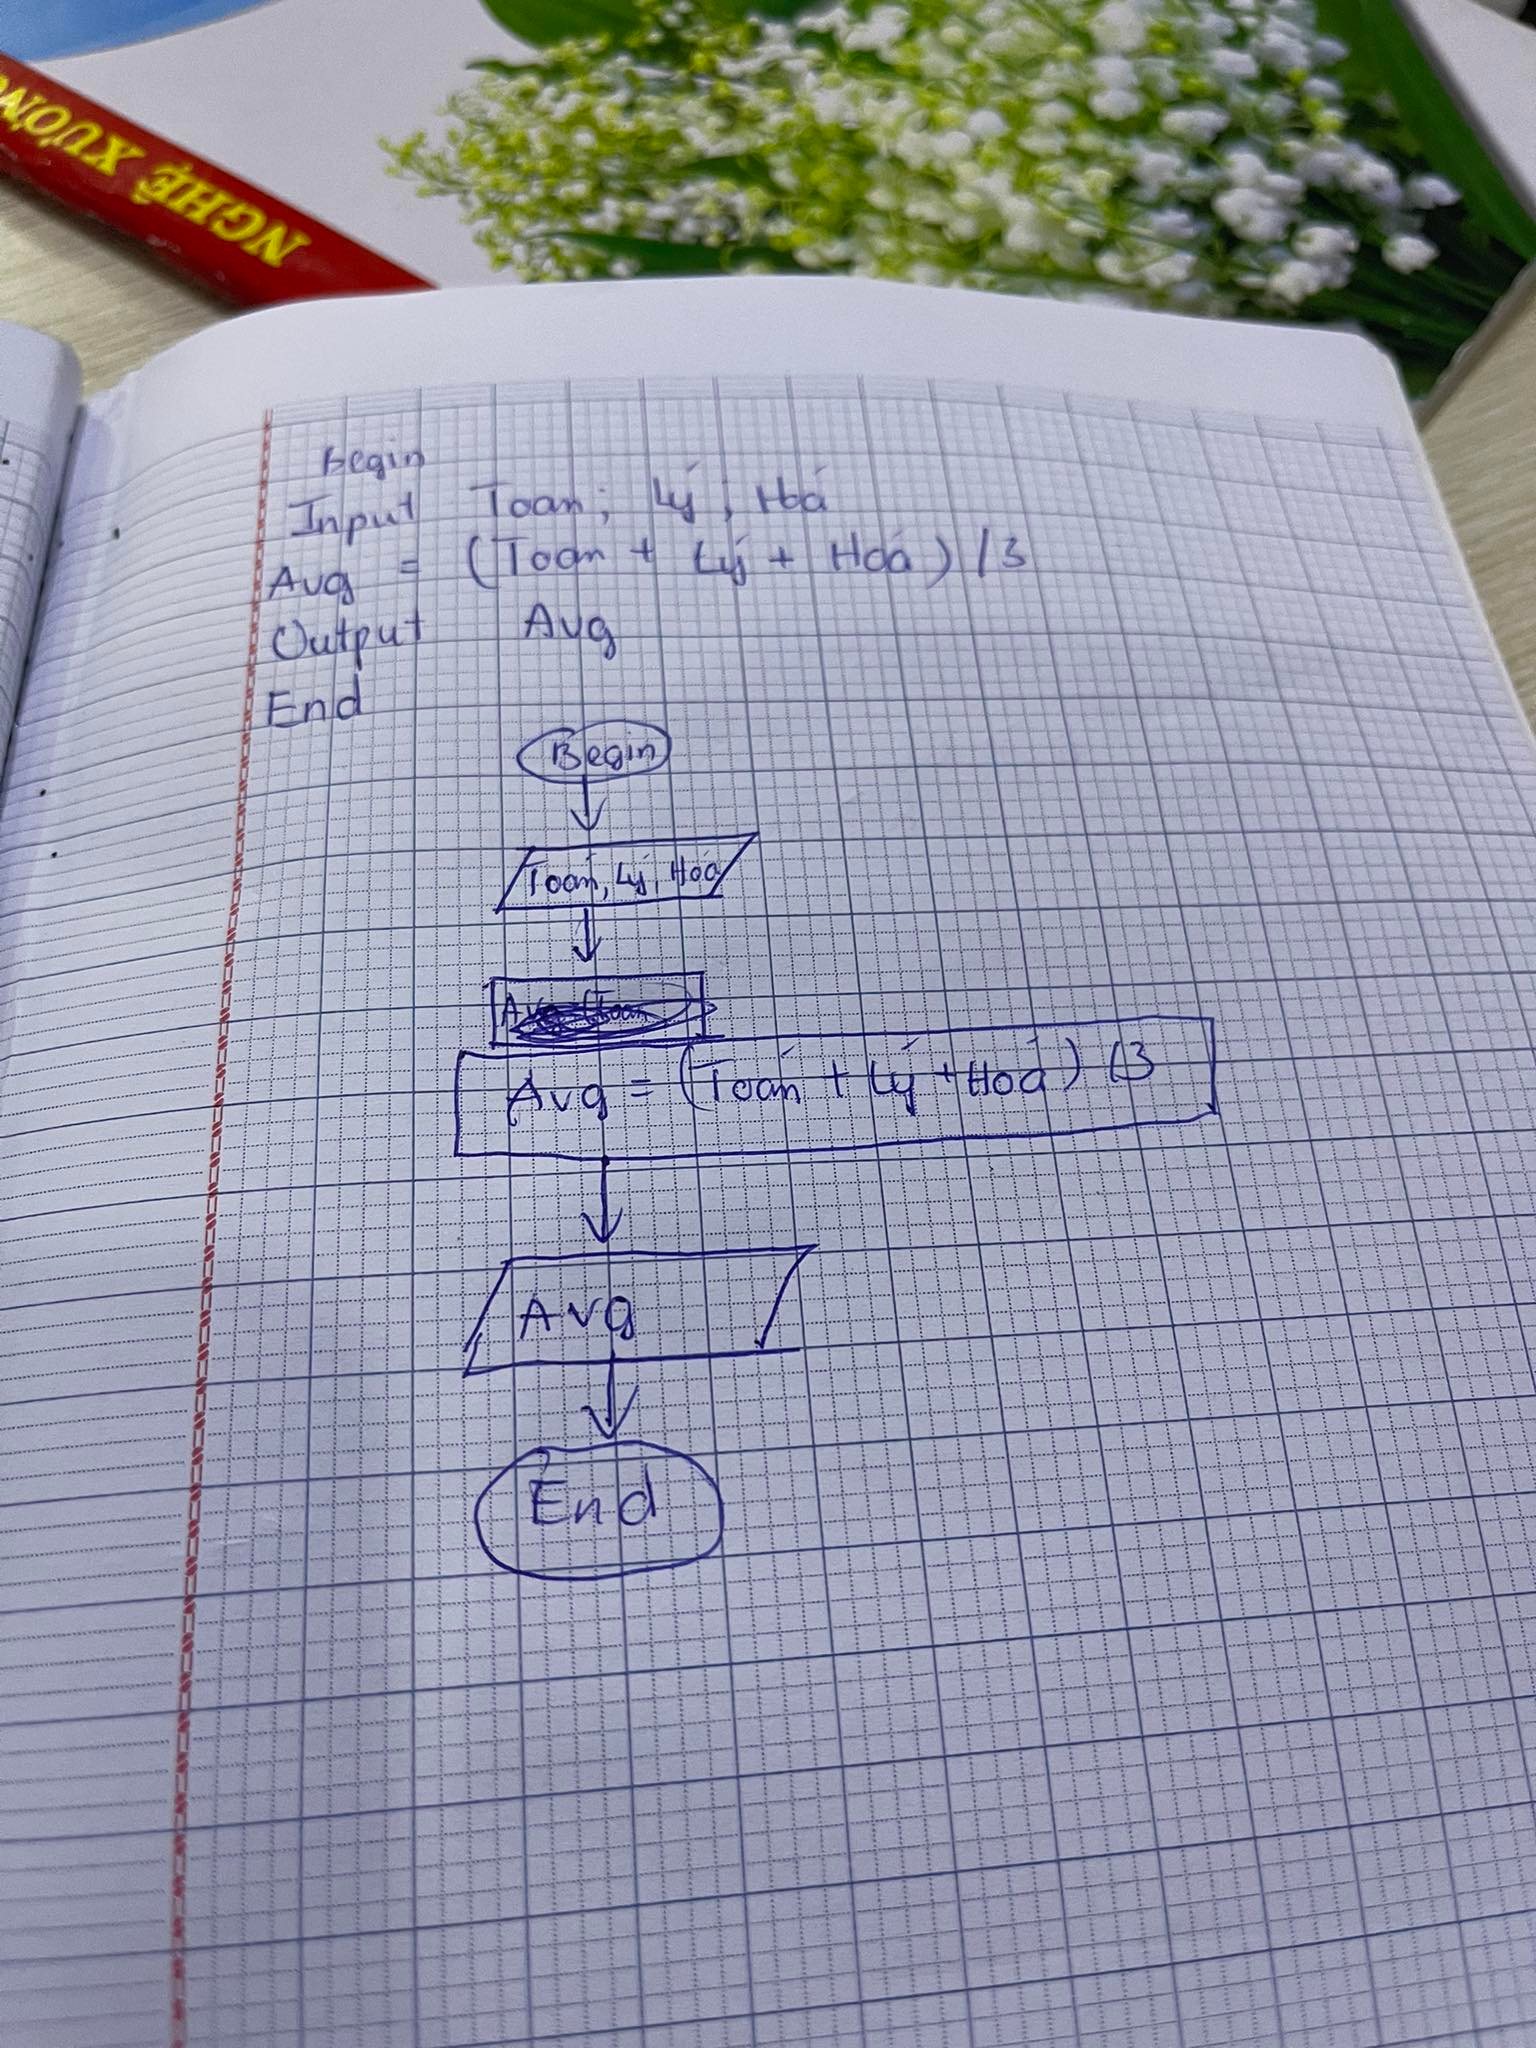 NGHỀ XƯỞN
Begin
Input Toan; Lý; Hoá
Avg = (Toán + Lý + Hoá) /3
Output Avg
End
Begin
Toán, Lý, Hoá
Avg = (Toán + Lý + Hoá) /3
Avg
End